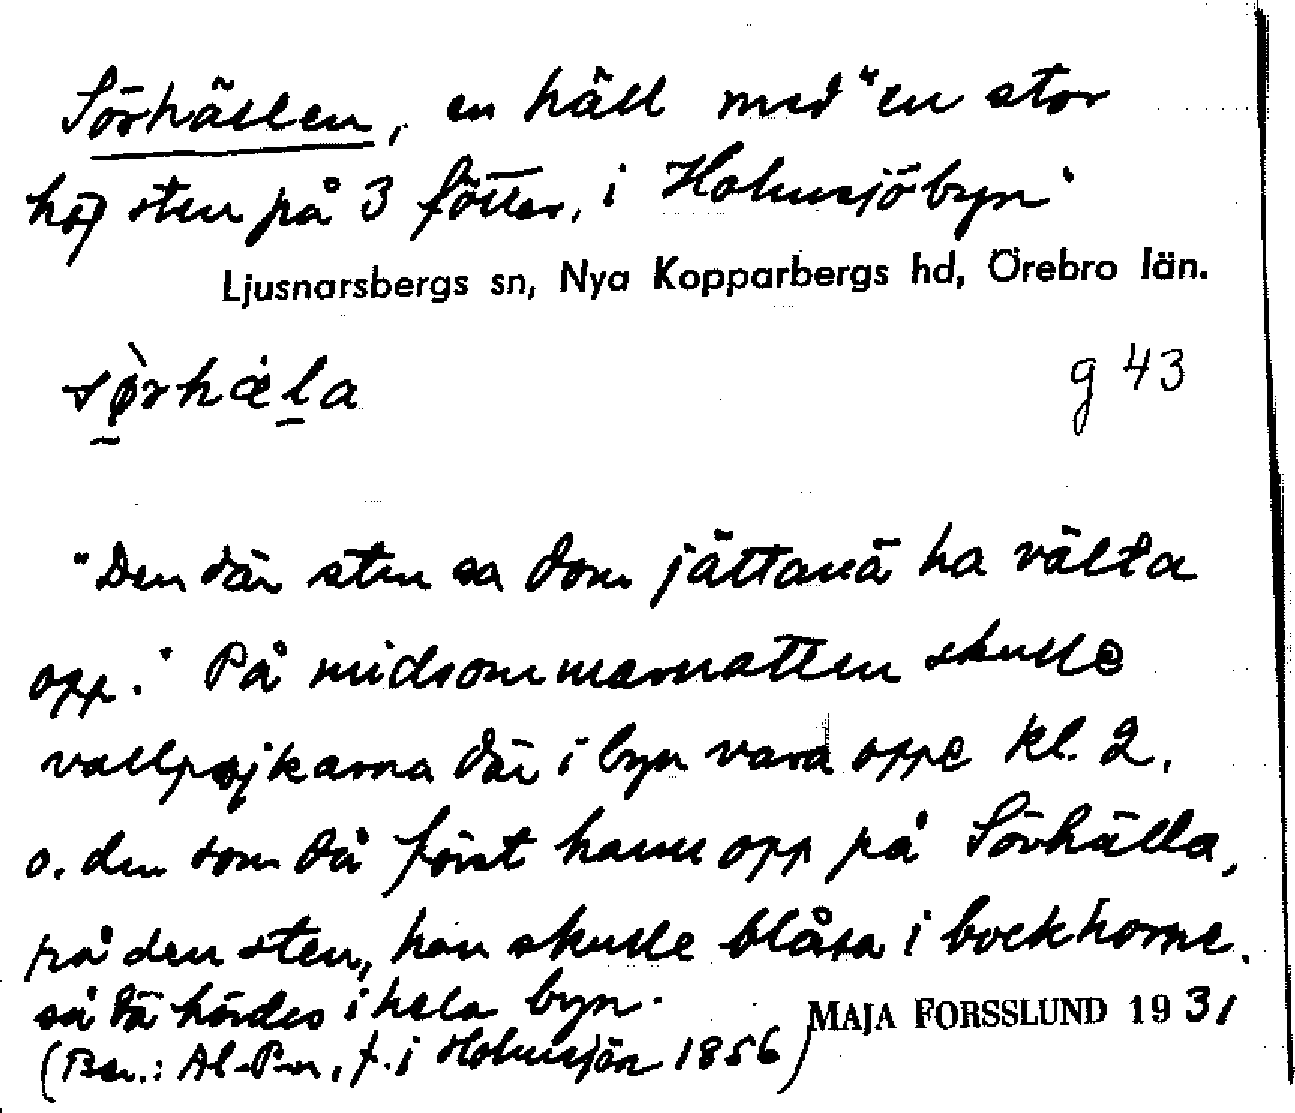 Sörhällen, en häll med "en stor
hög sten på 3 fötter, i Holmsjöbyn"
Ljusnarsbergs sn, Nya Kopparbergs hd, Örebro län.
g 43
"Den där sten sa dom jättanä ha välta
opp." På midsommarnatten skulle
vallpojkarna där i byn vara oppe kl. 2,
o. den som då först hann opp på Sörhälla,
på den sten, han skulle blåsa i bockhorne,
så dä hördes i hela byn.
MAJA FORSSLUND 1931
(Ber.: Al-P-n, f. i Holmsjön 1856)